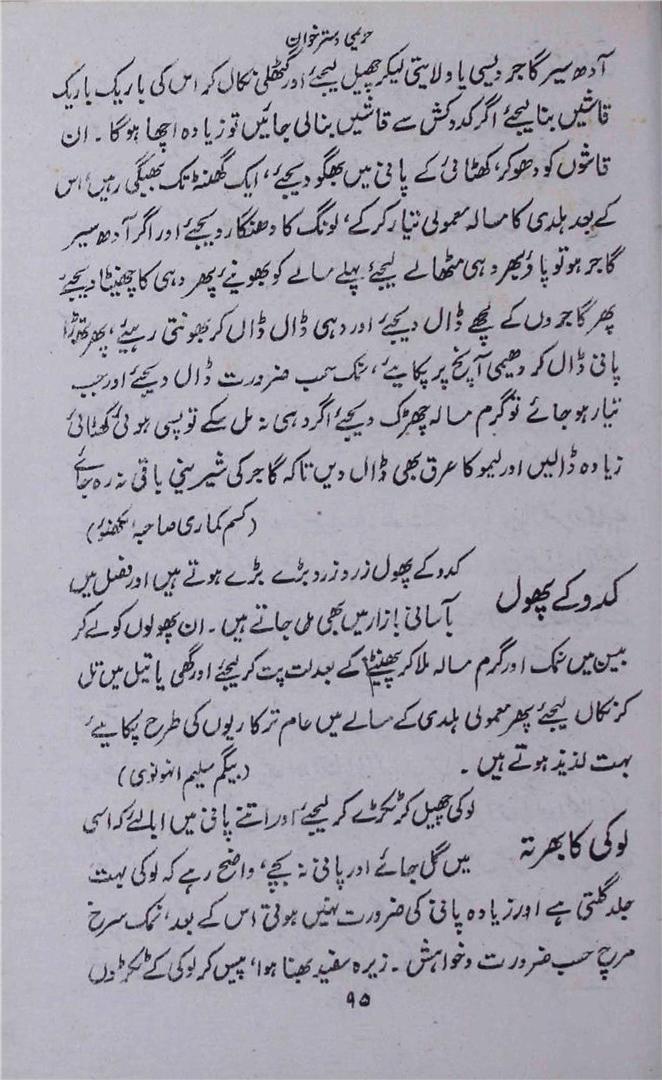 حریمی دسترخوان
آدھ سیر گاجر دیسی یا ولایتی لیکر چھیل لیجئے اور گٹھلی نکال کر اس کی باریک باریک
قاشیں بنا لیجئے اگر کدوکش سے قاشیں بنالی جائیں تو زیادہ اچھا ہوگا ۔ ان
قاشوں کو دھوکر، کھٹائی کے پانی میں بھگو دیجئے، ایک گھنٹہ تک بھیگی رہیں، اس
کے بعد ہلدی کا مسالہ معمولی تیار کرکے، لونگ کا دھنگار دیجئے اور اگر آدھ سیر
گاجر ہو تو پاؤ بھر دہی منٹھالے لیجئے پہلے مسالے کو بھونیے پھر دہی کا چھینٹا دیجئے
پھر گاجروں کے لچھے ڈال دیجئے اور دہی ڈال ڈال کر بھونتی رہیے، پھر تھوڑا
پانی ڈال کر دھیمی آنچ پر پکایئے، نمک حسب ضرورت ڈال دیجئے اور جب
تیار ہو جائے تو گرم مسالہ چھڑک دیجئے اگر دہی نہ مل سکے تو پسی ہوئی کھٹائی
زیادہ ڈالیں اور لیمو کا عرق بھی ڈال دیں تاکہ گاجر کی شیرینی باقی نہ رہ جائے
(کسم کماری صاحبہ لکھنؤ)
کدو کے پھول
کدو کے پھول زرد زرد بڑے بڑے ہوتے ہیں اور فصل میں
بآسانی بازار میں بھی مل جاتے ہیں ۔ ان پھولوں کو لے کر
بیسن میں نمک اور گرم مسالہ ملا کر پھینٹنے کے بعد لت پت کر لیجئے اور گھی یا تیل میں تل
کر نکال لیجئے پھر معمولی ہلدی کے مسالے میں عام ترکاریوں کی طرح پکایئے
بہت لذیذ ہوتے ہیں ۔
(بیگم سلیم انہونوی)
لوکی کا بھرتہ
لوکی چھیل کر ٹکڑے کر لیجئے اور اتنے پانی میں ابالئے کہ اسی
میں گل جائے اور پانی نہ بچے، واضح رہے کہ لوکی بہت
جلد گلتی ہے اور زیادہ پانی کی ضرورت نہیں ہوتی اس کے بعد، نمک سرخ
مرچ حسب ضرورت و خواہش ۔ زیرہ سفید بھنا ہوا، پیس کر لوکی کے ٹکڑوں
۹۵